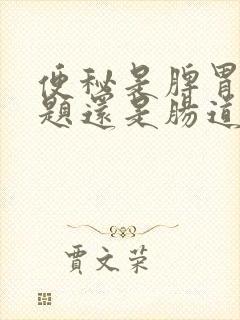 便秘是脾胃
題還是腸道
賈文荣